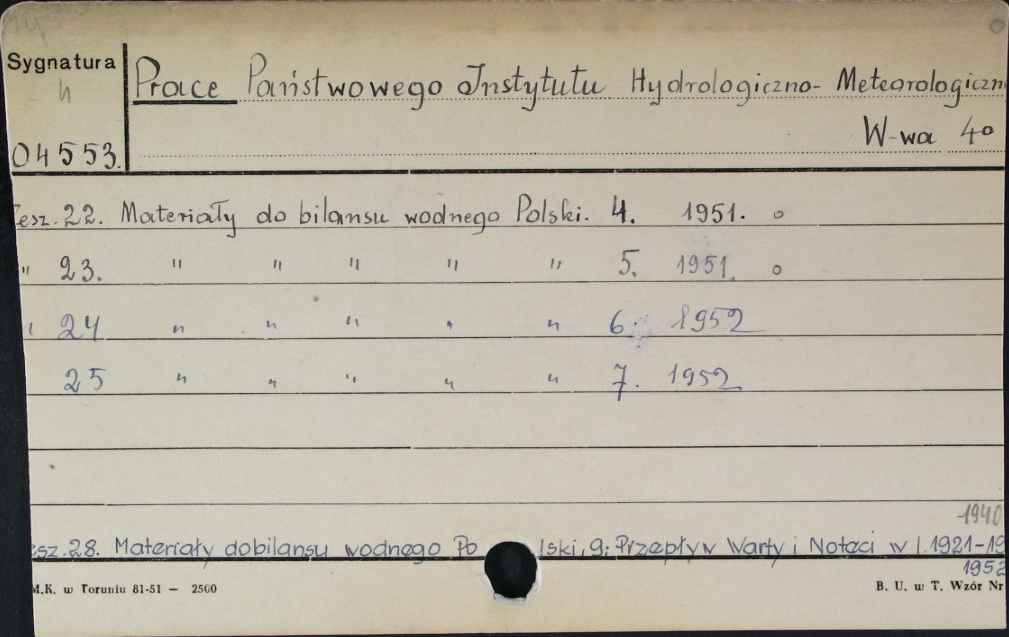 Sygnatura
h
04553.
Prace Państwowego Instytutu Hydrologiczno-Meteorologiczn
W-wa 4o
esz. 22. Materiały do bilansu wodnego Polski. 4. 1951. o
" 23. " " " " " 5. 1951. o
" 24 " " " " " 6. 1952
25 " " " " " 7. 1952
1940
esz. 28. Materiały do bilansu wodnego Polski, 9: Przepływ Warty i Noteci w l. 1921-19
1952
M.K. w Toruniu 81-51 — 2500
B. U. w T. Wzór Nr